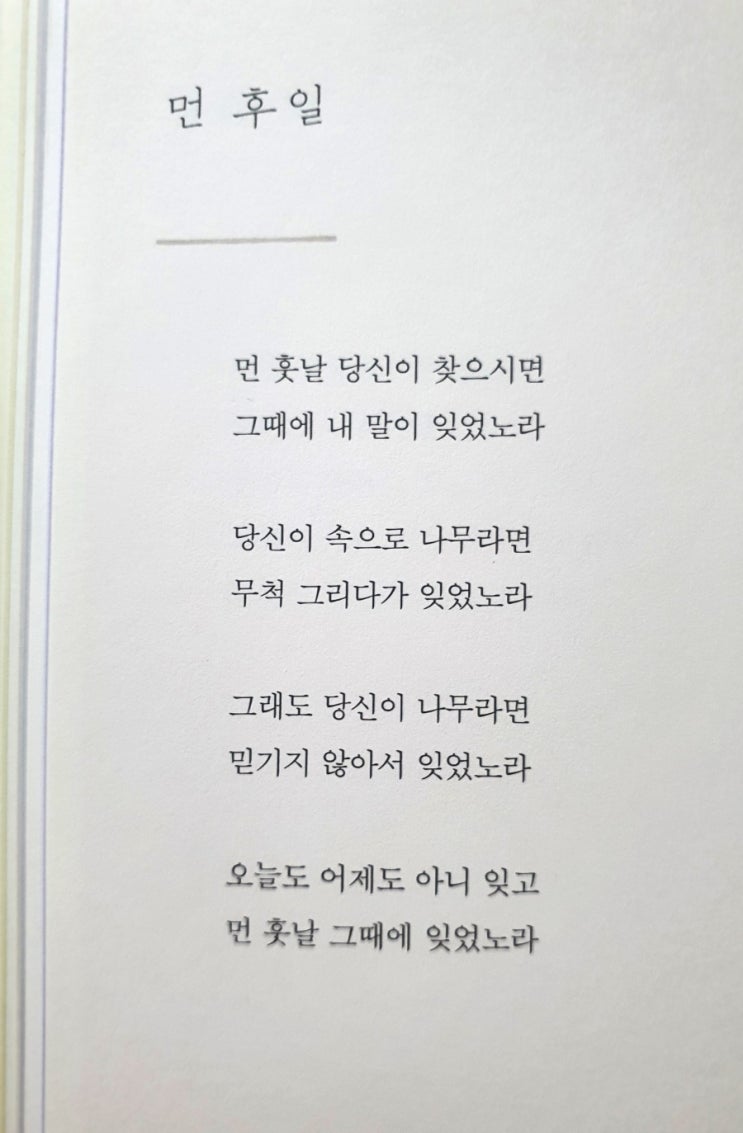 먼 후일
먼 훗날 당신이 찾으시면
그때에 내 말이 잊었노라
당신이 속으로 나무라면
무척 그리다가 잊었노라
그래도 당신이 나무라면
믿기지 않아서 잊었노라
오늘도 어제도 아니 잊고
먼 훗날 그때에 잊었노라